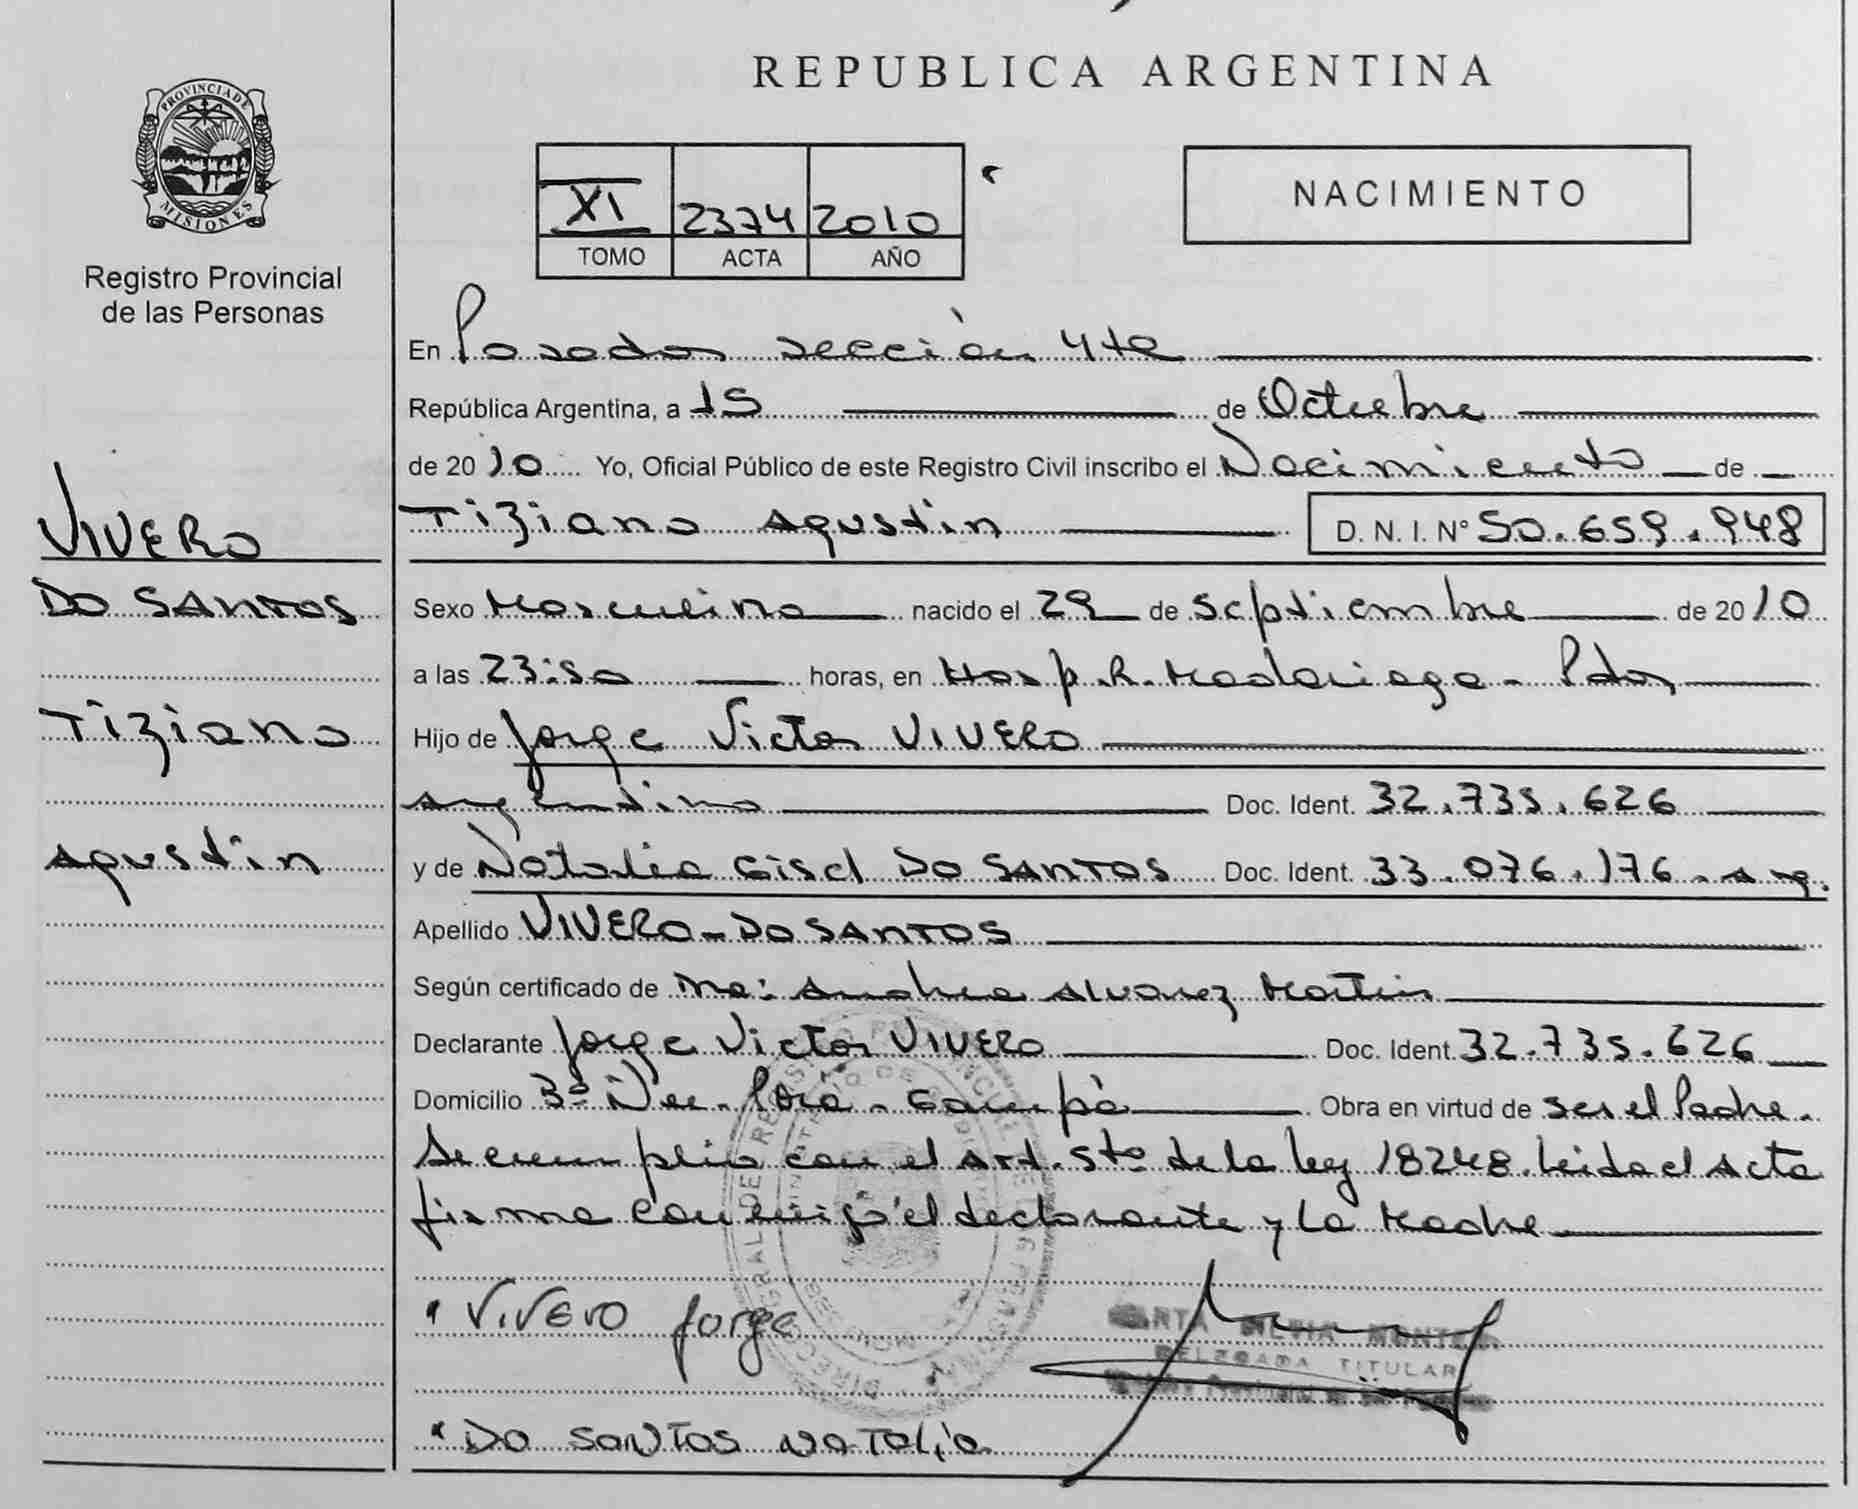 REPUBLICA ARGENTINA
PROVINCIA DE
MISIONES
Registro Provincial
de las Personas
XI 2374 2010
TOMO ACTA AÑO
NACIMIENTO
En Posadas sección 4ta
República Argentina, a 15 de Octubre
de 2010 Yo, Oficial Público de este Registro Civil inscribo el Nacimiento de
Tiziano Agustin D. N. I. N° 50.659.948
VIVERO
DO SANTOS
Tiziano
Agustin
Sexo Masculino nacido el 29 de Septiembre de 2010
a las 23:50 horas, en Hosp. R. Madariaga - Pdas
Hijo de Jorge Victor VIVERO
argentino Doc. Ident. 32.735.626
y de Natalia Gisel DO SANTOS Doc. Ident. 33.076.176 - arg.
Apellido VIVERO - DO SANTOS
Según certificado de Andrea Alvarez Martin
Declarante Jorge Victor VIVERO Doc. Ident. 32.735.626
Domicilio Obra en virtud de ser el Padre.
Se cumplio con el Art. 5to de la ley 18248. Leida el Acta
firma conmigo el declarante y la Madre
VIVERO Jorge
DELEGADA TITULAR
DO SANTOS NATALIA